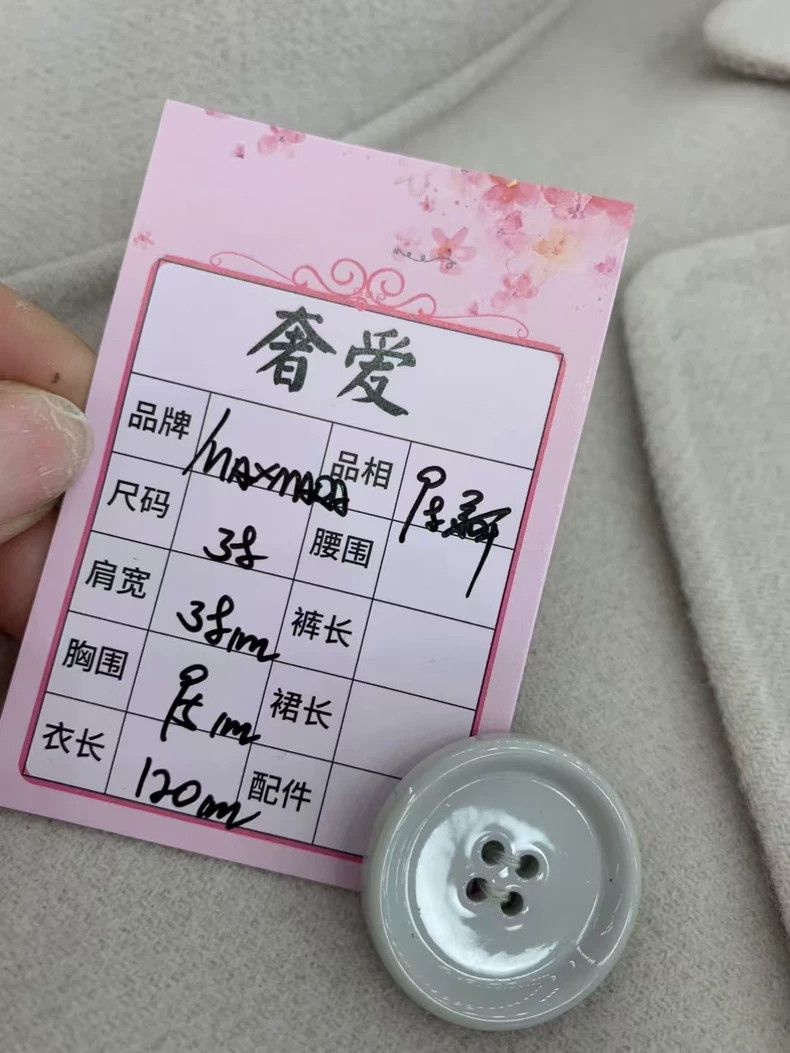 奢爱
品牌 MAXMARA 品相
尺码 38 腰围
肩宽 38cm 裤长
胸围 95cm 裙长
衣长 120cm 配件